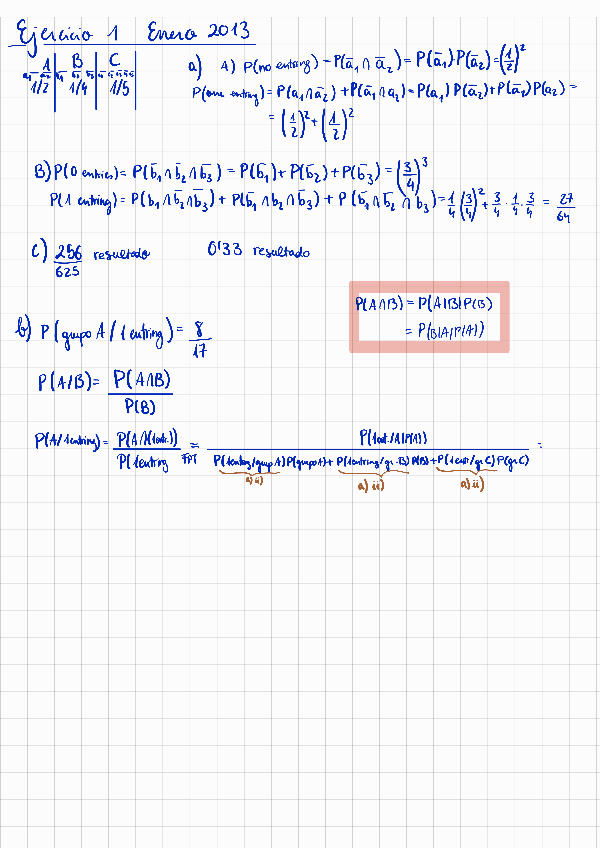 Ejercicio 1 Enero 2013
A B C
a₁ a₂ b₁ b₂ b₃
1/2 1/4 1/5
a) A) P(no entring) = P(ā₁ ∩ ā₂) = P(ā₁)·P(ā₂) = (1/2)²
P(one entring) = P(a₁ ∩ ā₂) + P(ā₁ ∩ a₂) = P(a₁) P(ā₂) + P(ā₁) P(a₂) =
= (1/2)² + (1/2)²
B) P(0 entries) = P(b̄₁ ∩ b̄₂ ∩ b̄₃) = P(b̄₁) + P(b̄₂) + P(b̄₃) = (3/4)³
P(1 entring) = P(b₁ ∩ b̄₂ ∩ b̄₃) + P(b̄₁ ∩ b₂ ∩ b̄₃) + P(b̄₁ ∩ b̄₂ ∩ b₃) = 1/4 (3/4)² + 3/4 · 1/4 · 3/4 = 27/64
C) 256/625 resultado 0'33 resultado
P(A∩B) = P(A|B)P(B)
= P(B|A)P(A)
b) P(grupo A / 1 entring) = 8/17
P(A/B) = P(A∩B)/P(B)
P(A/1entring) = P(A∩(1entr.))/P(1entring FPT = P(1ent./A)P(A))/P(1entring/grup A)P(grupo A) + P(1entring/gr. B) P(B) + P(1entr/gr. C) P(gr. C) =
a) ii) a) ii) a) ii)